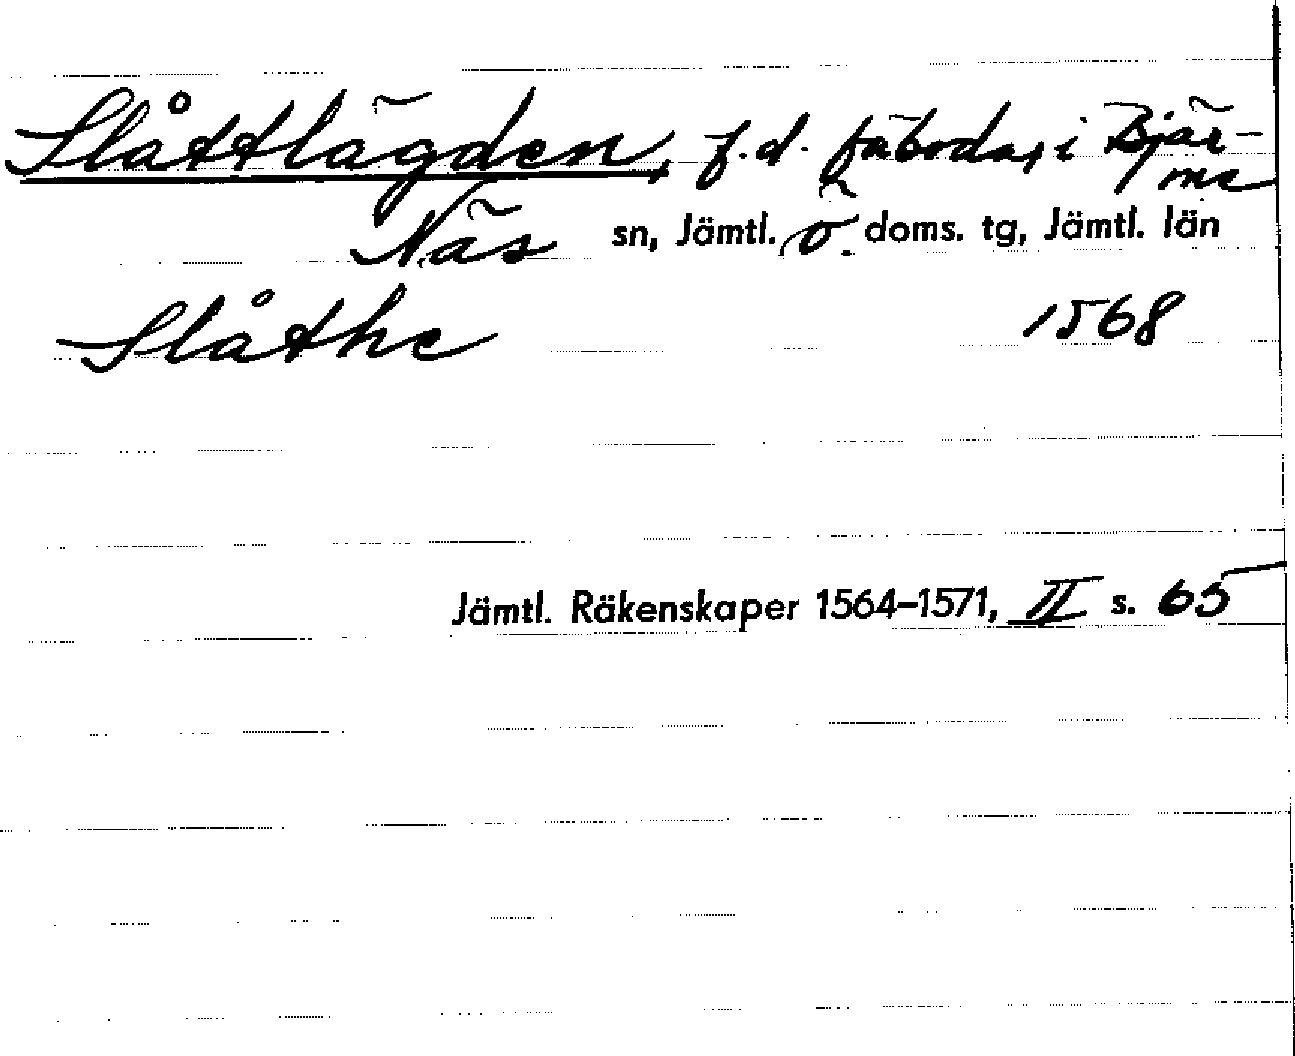 Slåttlägden, f.d. fäbodar i Bjär-
me
Näs sn, Jämtl. ö. doms. tg, Jämtl. län
Slåthe 1568
Jämtl. Räkenskaper 1564–1571, II s. 65